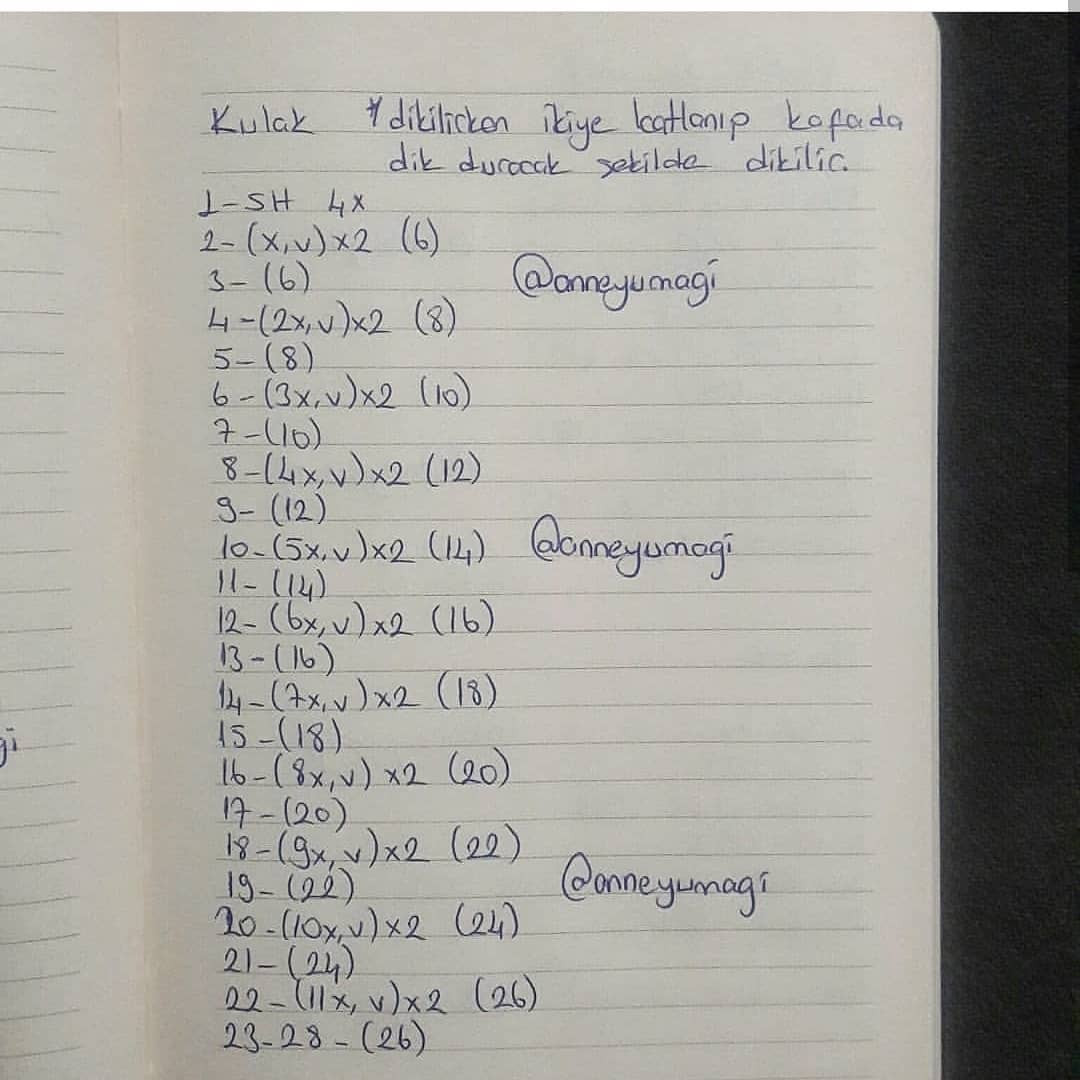 Kulak * dikilirken ikiye katlanıp kafada
dik duracak şekilde dikilir.
1-SH 4x
2-(x,v)x2 (6)
3-(6)
@anneyumagi
4-(2x,v)x2 (8)
5-(8)
6-(3x,v)x2 (10)
7-(10)
8-(4x,v)x2 (12)
9-(12)
10-(5x,v)x2 (14) @anneyumagi
11-(14)
12-(6x,v)x2 (16)
13-(16)
14-(7x,v)x2 (18)
15-(18)
gi
16-(8x,v)x2 (20)
17-(20)
18-(9x,v)x2 (22)
19-(22) @anneyumagi
20-(10x,v)x2 (24)
21-(24)
22-(11x,v)x2 (26)
23-28-(26)